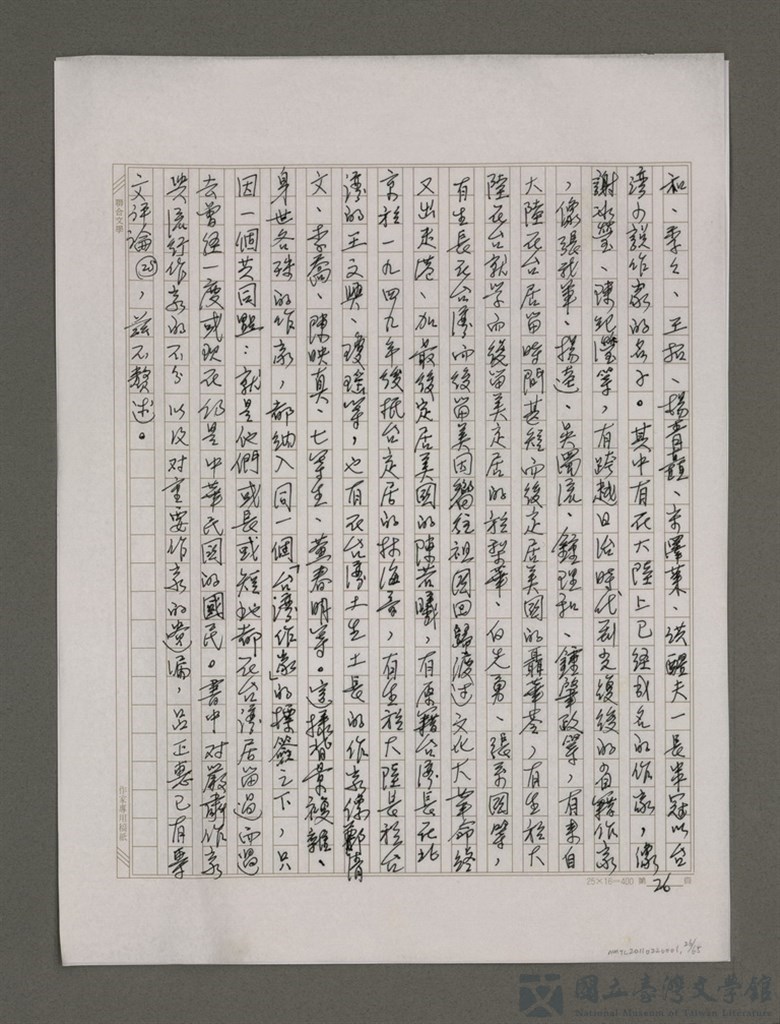 和、季季、王拓、楊青矗、宋澤萊、洪醒夫一長串冠以台
灣小說作家的名字。其中有在大陸上已經成名的作家，像
謝冰瑩、陳紀瀅等，有跨越日治時代到光復後的省籍作家
，像張我軍、楊逵、吳濁流、鍾理和、鍾肇政等，有來自
大陸在台居留時間甚短而後定居美國的聶華苓，有生於大
陸在台就學而後留美定居的於梨華、白先勇、張系國等，
有生長在台灣而後留美因嚮往祖國回歸渡過文化大革命終
又出走港、加最後定居美國的陳若曦，有原籍台灣長在北
京於一九四九年後抵台定居的林海音，有生於大陸長於台
灣的王文興、瓊瑤等，也有在台灣土生土長的作家像鄭清
文、李喬、陳映真、七等生、黃春明等。這樣背景複雜、
身世各殊的作家，都納入同一個「台灣作家」的標簽之下，只
因一個共同點：就是他們或長或短地都在台灣居留過而過
去曾經一度或現在仍是中華民國的國民。書中对嚴肅作家
與流行作家的不分以及对重要作家的遺漏，呂正惠已有專
文評論㉕，茲不贅述。
聯合文學
作家專用稿紙
25×16=400 第 26 頁
國立臺灣文學館
National Museum of Taiwan Literature